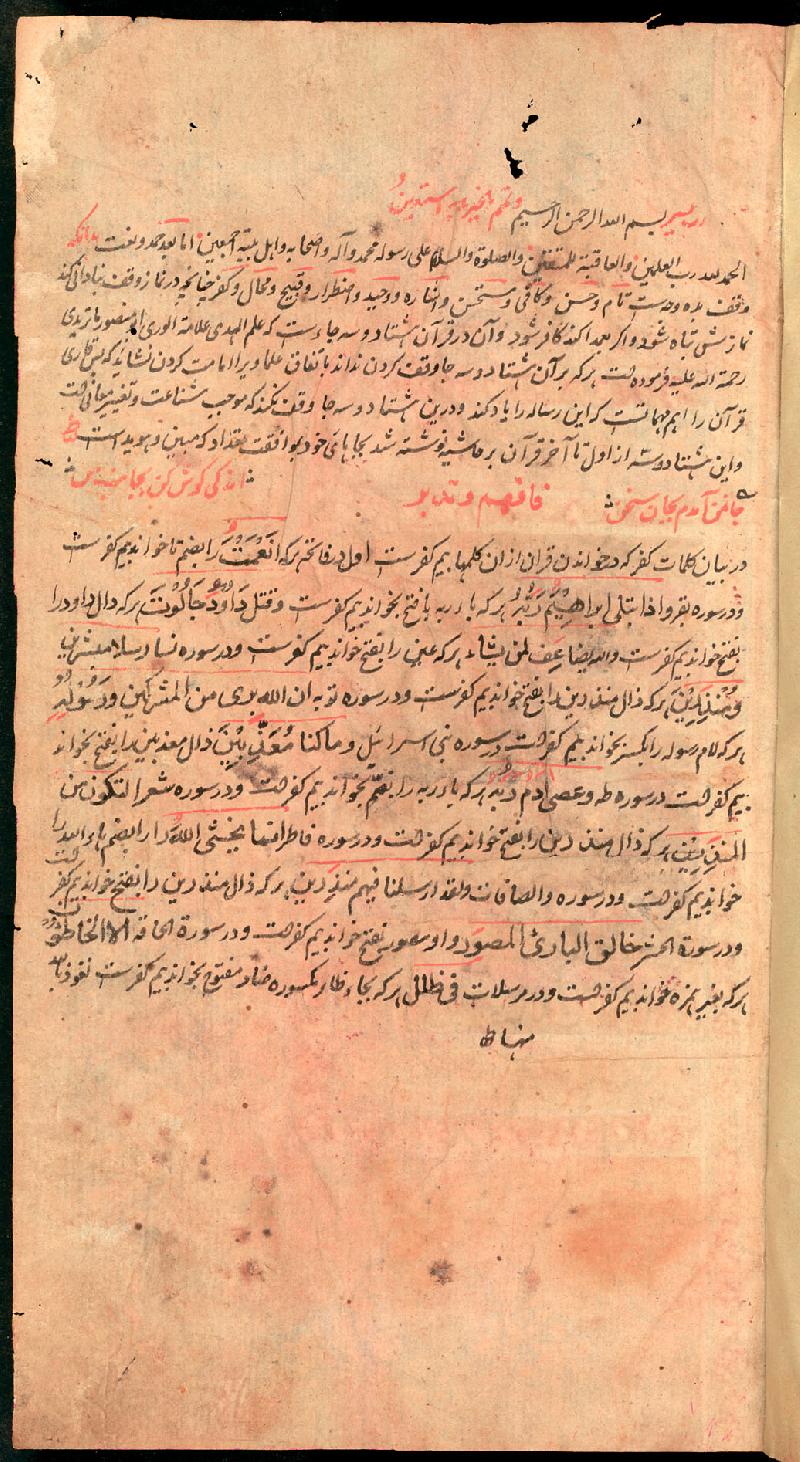 رب یسر بسم الله الرحمن الرحیم وتمم بالخیر وبه نستعین
الحمد لله رب العلمین والعاقبة للمتقین والصلوة والسلام علی رسوله محمد وآله واصحابه واهل بیته اجمعین اما بعد حمد ونعت بدانکه
وقف ده وجه است تام وحسن وکافی ومستحسن واشاره ووحید واضطرار وقبیح ومحال وکفر چنانچه در نماز وقف بنادانی کند
نمازش تباه شود واگر بعمدا کند کافر شود وآن در قرآن هشتاد وسه جاء ست که علم الهدی علامة الوری ابو منصور ماتریدی
رحمة الله علیه فرموده است هرکه بر آن هشتاد وسه جا وقف کردن نداند باتفاق علما ویرا امامت کردن نشاید که پس قاری
قرآن را اهم مهمات است که این رساله را یاد کند ودرین هشتاد وسه جا وقف نکند که موجب شناعت وتغییر معانی است
واین هشتاد وسه از اول تا آخر قرآن بر حاشیه نوشته شد بجا بهای خود بموافقت تعداد که مبین وهویدا است
جانمن آمدم بجان سخن فافهم وتدبر اندکی گوش کن بجانب من
در بیان کلمات کفر که در خواندن قران از ان کلمها بیم کفر است اول در فاتحه هرکه انعمت را بضم تا خواند بیم کفر است
ودر سوره بقر واذا ابتلی ابراهیم ربه هرکه با ربه با فتح بخواند بیم کفر است وقتل داود جالوت هرکه دال داود را
بفتح خواند بیم کفر است والله یضاعف لمن یشاء هرکه عین را بفتح خواند بیم کفر است ودر سوره نسا رسلا مبشرین
ومنذرین هرکه ذال منذرین را بفتح خواند بیم کفر است ودر سوره توبه ان الله بری من المشرکین ورسوله
هرکه لام رسوله را بکسر بخواند بیم کفر است در سوره بنی اسرائیل وما کنا معذبین ذال معذبین را بفتح بخواند
بیم کفر است در سوره طه وعصی ادم ربه هرکه با ربه را بضم بخواند بیم کفر است ودر سوره شعرا لتکون من
المنذرین هرکه ذال منذرین را بفتح خواند بیم کفر است ودر سوره فاطر انما یخشی الله را بضم هاء الله را
خواند بیم کفر است ودر سوره والصافات ولقد ارسلنا فیهم منذرین هرکه ذال منذرین را بفتح خواند بیم کفر است
ودر سورة الحشر خالق البارئ المصور واو مصور بفتح خواند بیم کفر است ودر سورة الحاقه الا الخاطؤن
هرکه بغیر همزه خواند بیم کفر است ودر مرسلات فی ظلل هرکه بجاء ظاء مکسوره ضاد مفتوح بخواند بیم کفر است نعوذ بالله
منها